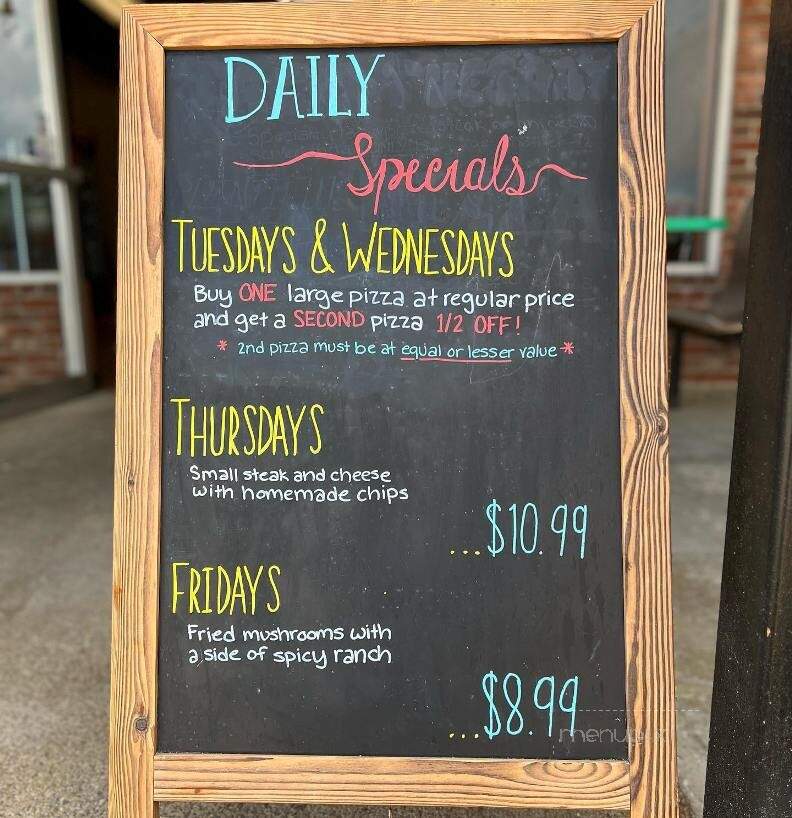 DAILY
Specials
TUESDAYS & WEDNESDAYS
Buy ONE large pizza at regular price
and get a SECOND pizza 1/2 OFF!
* 2nd pizza must be at equal or lesser value *
THURSDAYS
Small steak and cheese
with homemade chips
...$10.99
FRIDAYS
Fried mushrooms with
a side of spicy ranch
...$8.99